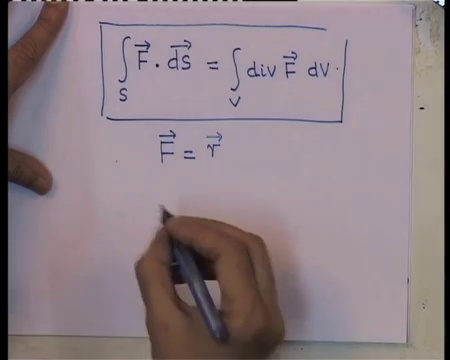 ∫_S F⃗ · d⃗S = ∫_V div F⃗ dV.
F⃗ = r⃗